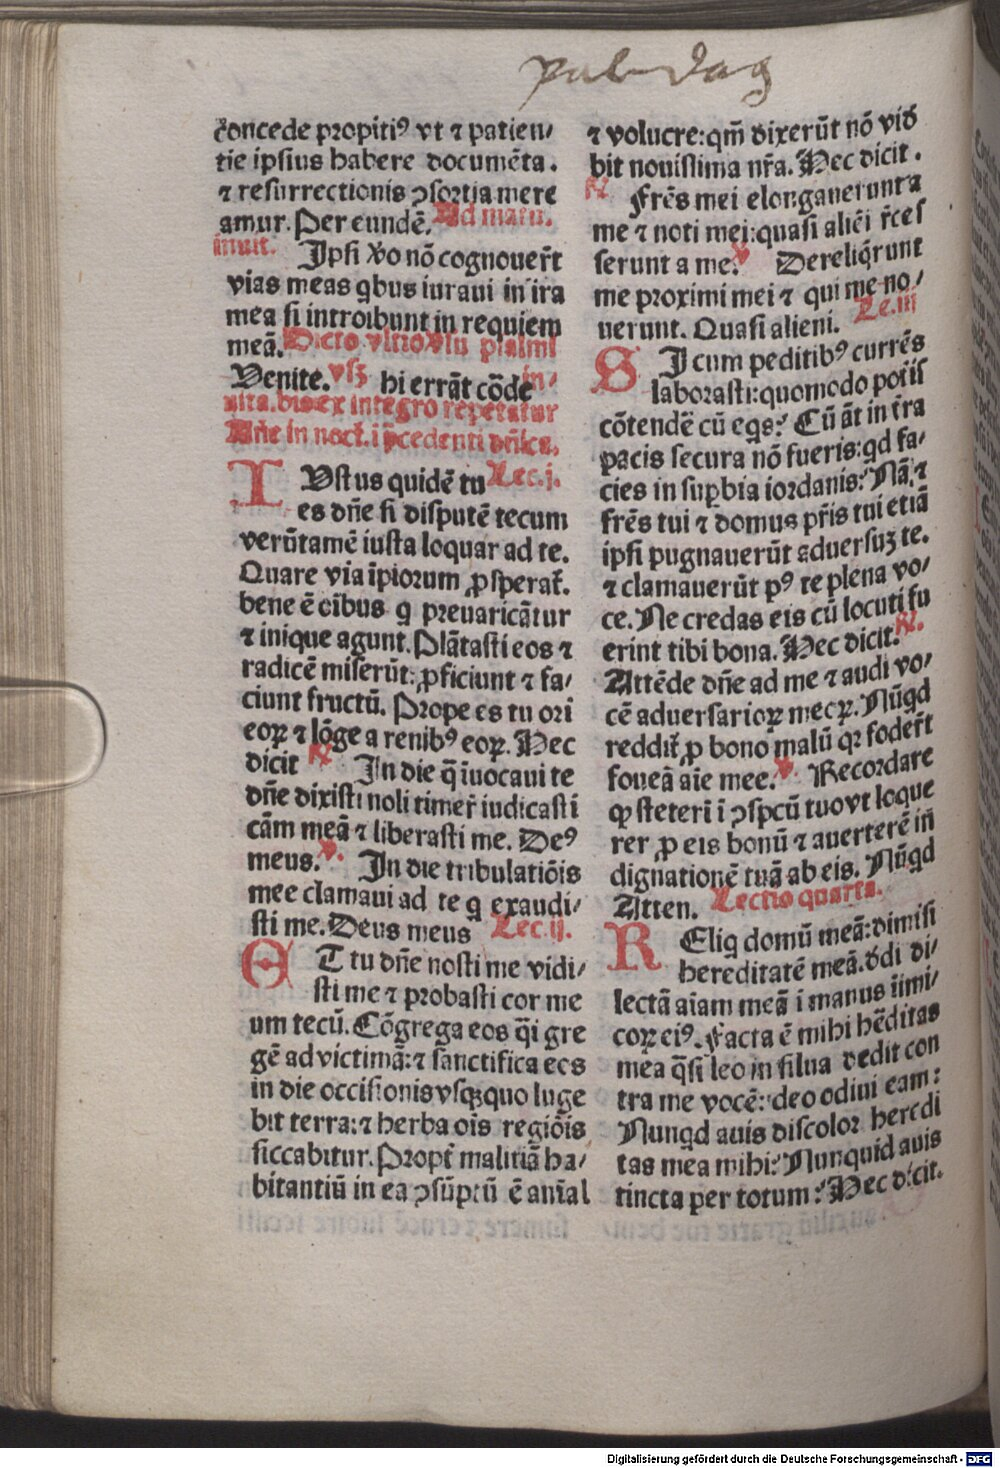 palmdag
concede propitiꝰ vt ⁊ patien/
tie ipsius habere documēta.
⁊ resurrectionis ꝯsortia mere
amur. Per eundē. Ad matu.
inuit. Ipsi v̄o nō cognouer̄t
vias meas qbus iuraui in ira
mea si introibunt in requiem
meā. Dicto vltīo v̄su psalmi
Venite. vꝫ hi errāt cōde in/
uita. bis ex integro repetatur
Añe in noct. i p̄cedenti dñica.
IVstus quidē tu Lec. j.
es dñe si disputē tecum
verūtamē iusta loquar ad te.
Quare via īpiorum ꝓsperat̄.
bene ē oībus q preuaricātur
⁊ inique agunt. Plātasti eos ⁊
radicē miserūt: ꝓficiunt ⁊ fa/
ciunt fructū. Prope es tu ori
eoꝝ ⁊ lōge a renibꝰ eoꝝ. Hec
dicit ℟ In die q̄ īuocaui te
dñe dixisti noli timer̄ iudicasti
cām meā ⁊ liberasti me. Deꝰ
meus. ℣. In die tribulatiōis
mee clamaui ad te q exaudi/
sti me. Deus meus Lec. ij.
ET tu dñe nosti me vidi/
sti me ⁊ probasti cor me
um tecū. Cōgrega eos q̄i gre
gē ad victimā: ⁊ sanctifica eos
in die occisionis vsqꝫquo luge
bit terra: ⁊ herba oīs regiōis
siccabitur. Propt̄ malitiā ha/
bitantiū in ea ꝯsūptū ē anīal
⁊ volucre: qm̄ dixerūt nō vid
bit nouissima nr̄a. Hec dicit.
℟ Frēs mei elongauerunt a
me ⁊ noti mei: quasi aliēi r̄ces
serunt a me. ℣ Dereliq̄runt
me proximi mei ⁊ qui me no/
uerunt. Quasi alieni. Le. iij
SI cum peditibꝰ currēs
laborasti: quomodo pot̄is
cōtendē cū eqs? Cū āt in t̄ra
pacis secura nō fueris: qd fa/
cies in suꝑbia iordanis? Nā ⁊
frēs tui ⁊ domus pr̄is tui etiā
ipsi pugnauerūt aduersuꝫ te.
⁊ clamauerūt pꝰ te plena vo/
ce. Ne credas eis cū locuti fu
erint tibi bona. Hec dicit. ℟.
Attēde dñe ad me ⁊ audi vo/
cē aduersarioꝝ meoꝝ. Nūqd
reddit̄ ꝓ bono malū qꝛ foder̄t
foueā aīe mee. ℣. Recordare
ꝙ steteri ī ꝯspcū tuo vt loque
rer ꝓ eis bonū ⁊ auerterē iñ
dignationē tuā ab eis. Nūqd
Atten. Lectio quarta.
REliq domū meā: dimisi
hereditatē meā. d̄di di/
lectā aīam meā ī manus īimi/
coꝝ eiꝰ. Facta ē mihi hēditas
mea q̄si leo in silua dedit con
tra me vocē: ideo odiui eam:
Nunqd auis discolor heredi
tas mea mihi? Nunquid auis
tincta per totum? Hec dicit.
Digitalisierung gefördert durch die Deutsche Forschungsgemeinschaft - DFG